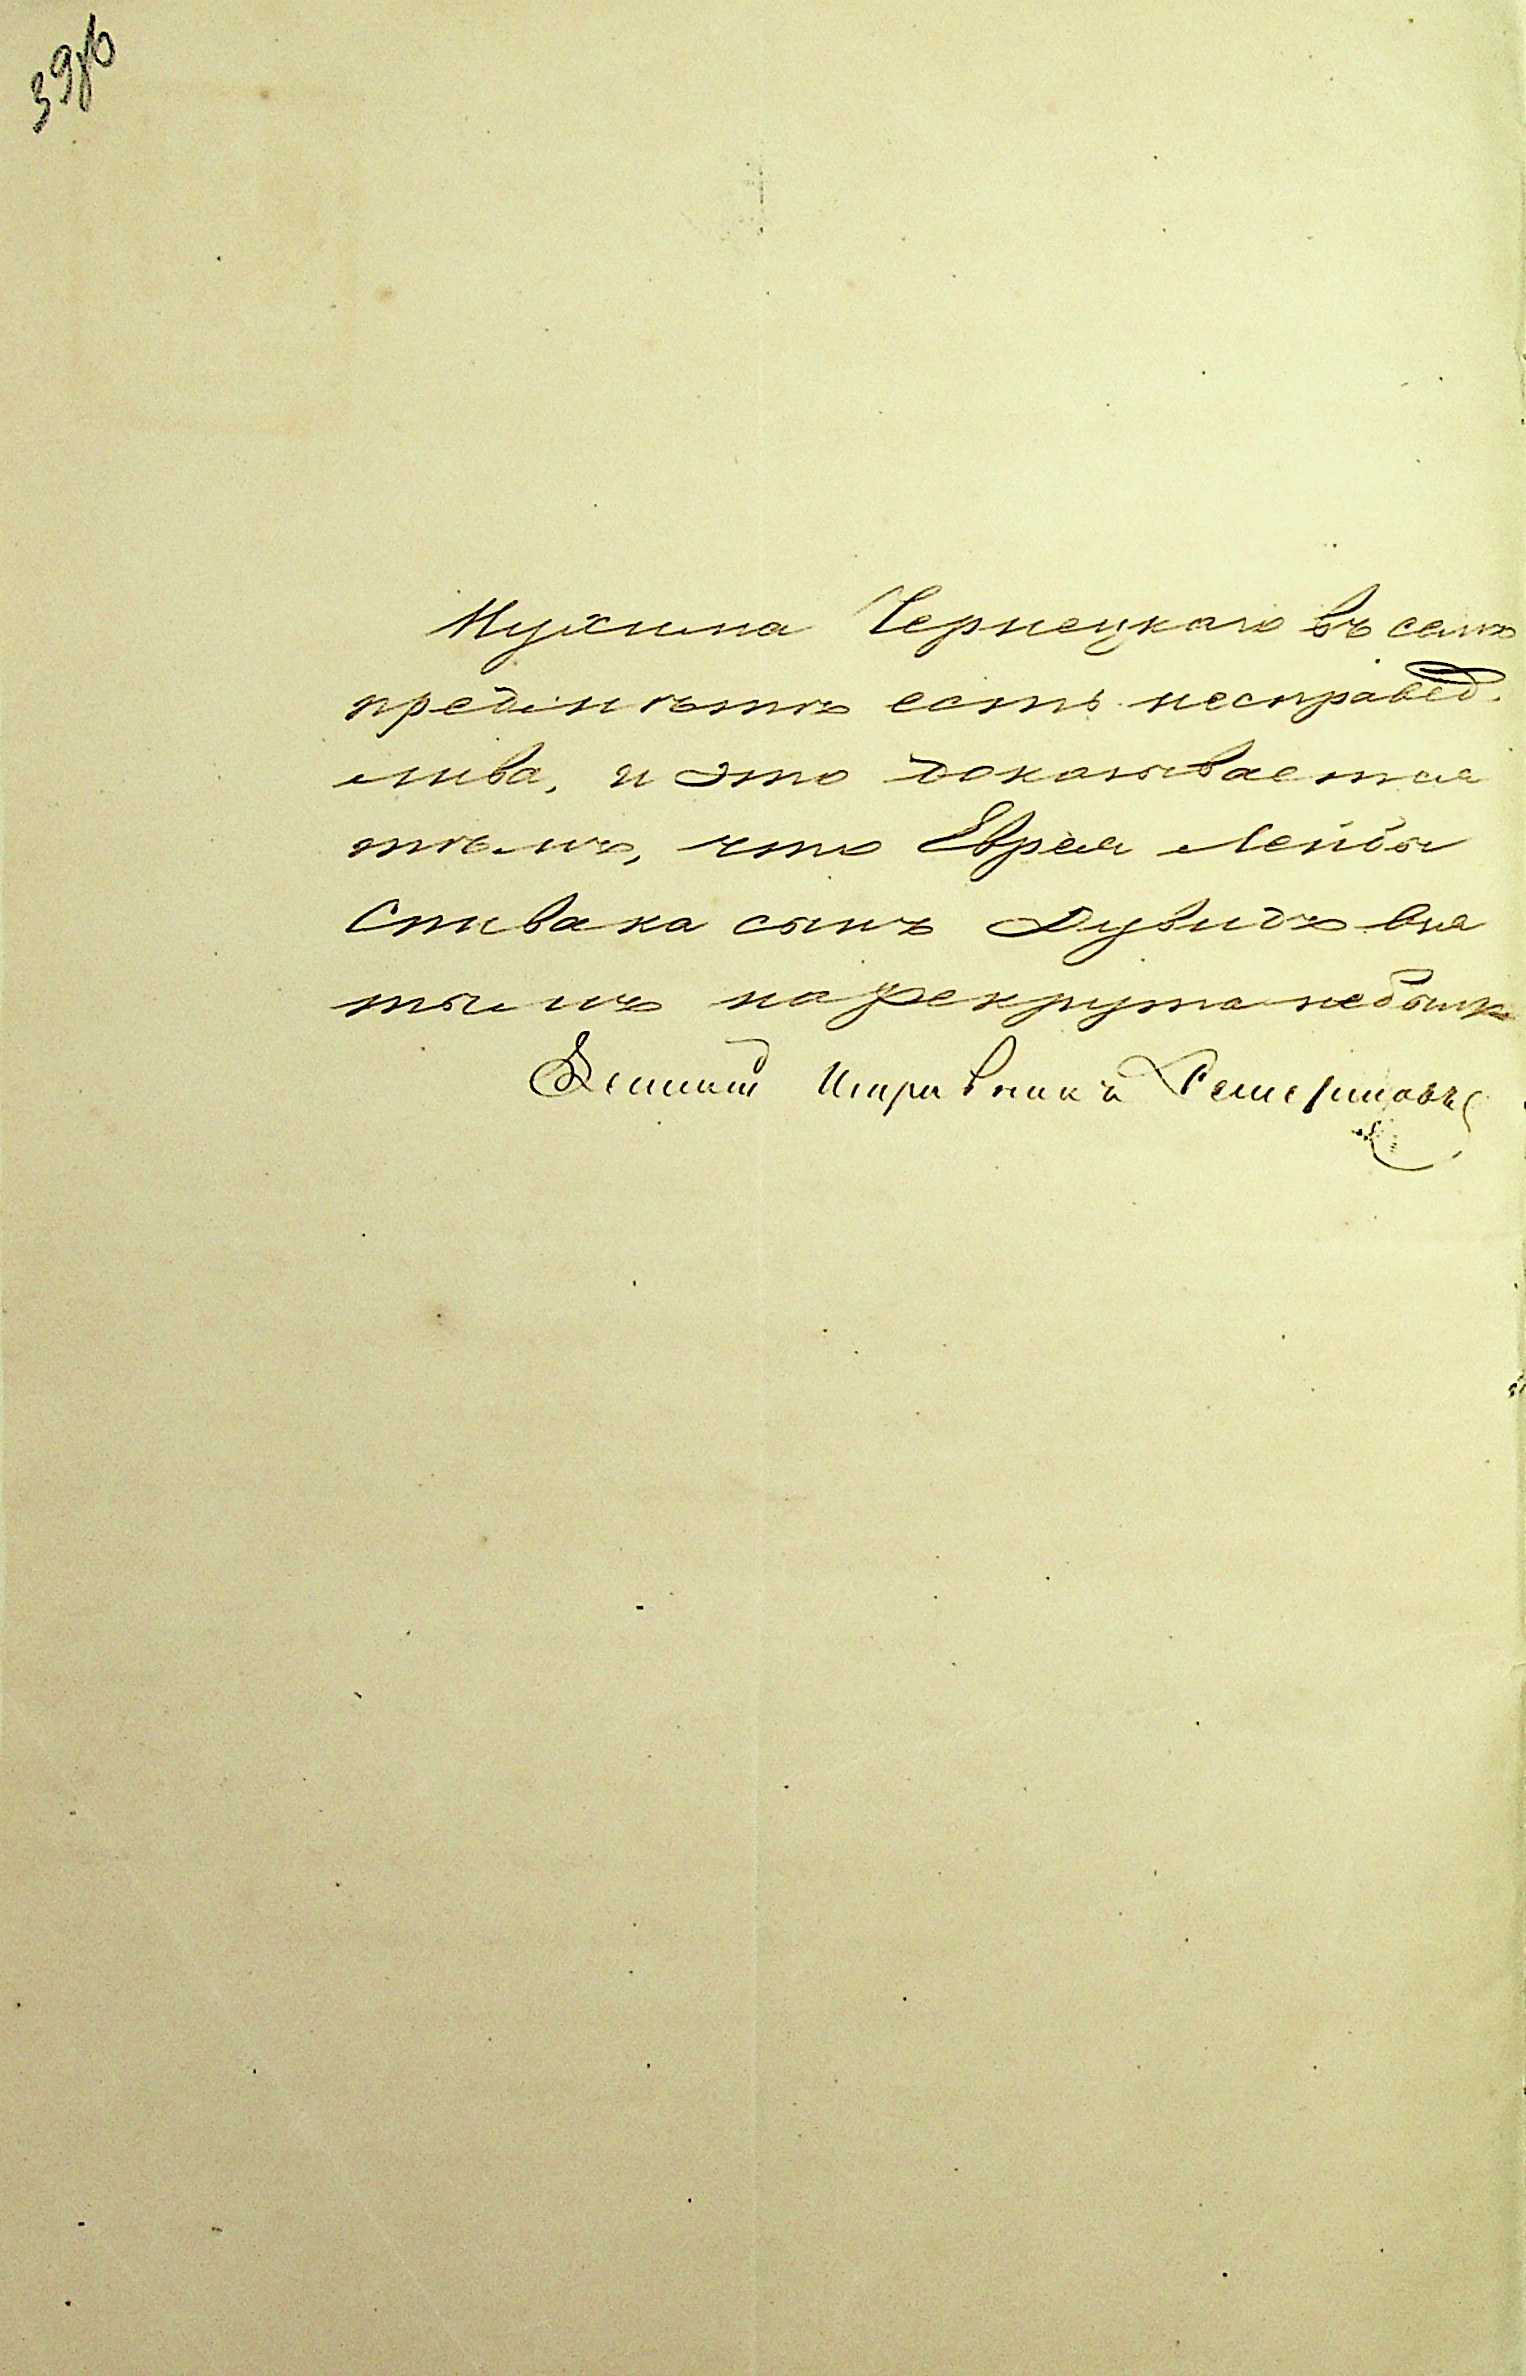 39об
Мухина Чернецкаго въ семъ
предметѣ есть несправед-
лива, и это доказывается
тѣмъ, что Еврея Лейбы
Спивака сынъ Дувидъ взя
тымъ на рекрута не былъ
Земскій Исправникъ